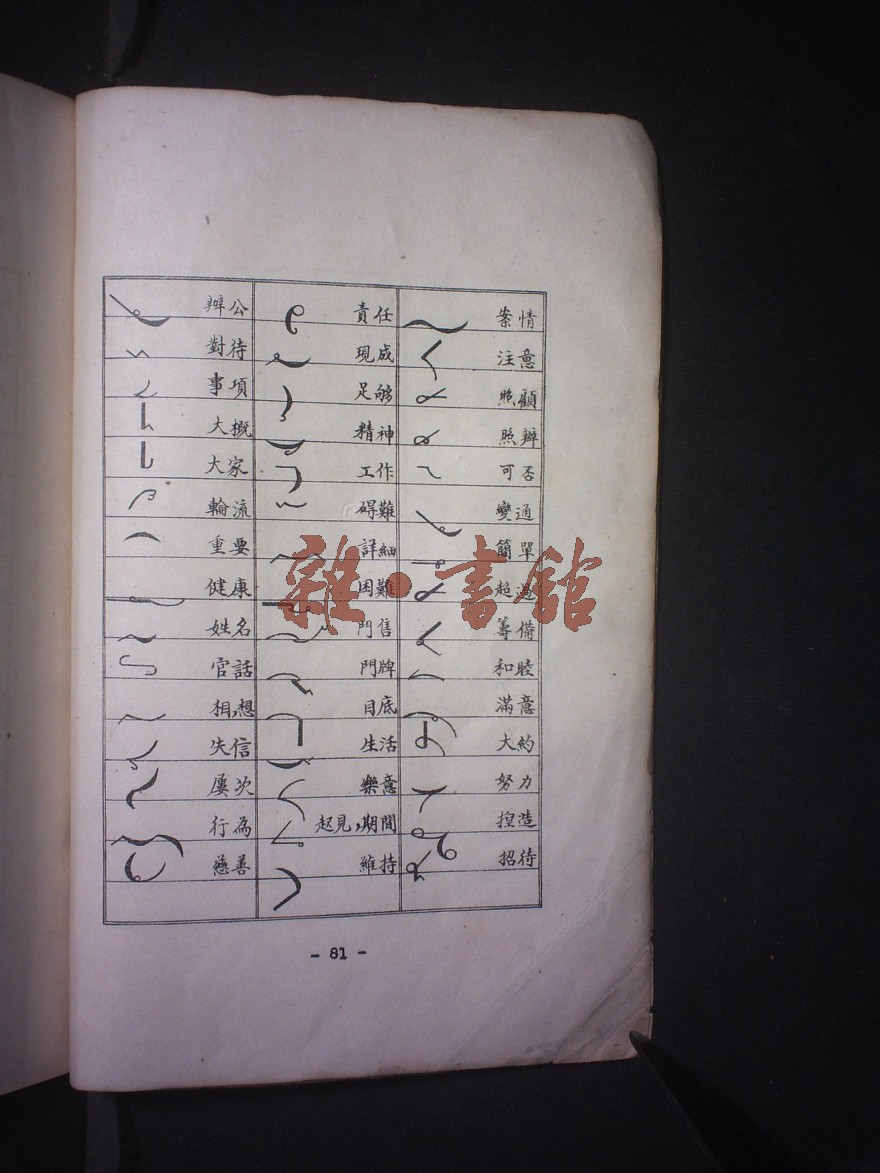 辦公 責任 案情
對待 現成 注意
事項 足够 照顧
大概 精神 照辦
大家 工作 可否
輪流 碍難 變通
重要 詳細 簡單
健康 困難 超過
姓名 門售 籌備
官話 門牌 和睦
相,想 目底 滿意
失信 生活 大約
屢次 樂意 努力
行為 起見,期間 揑造
慈善 維持 招待
- 81 -
雜·書館